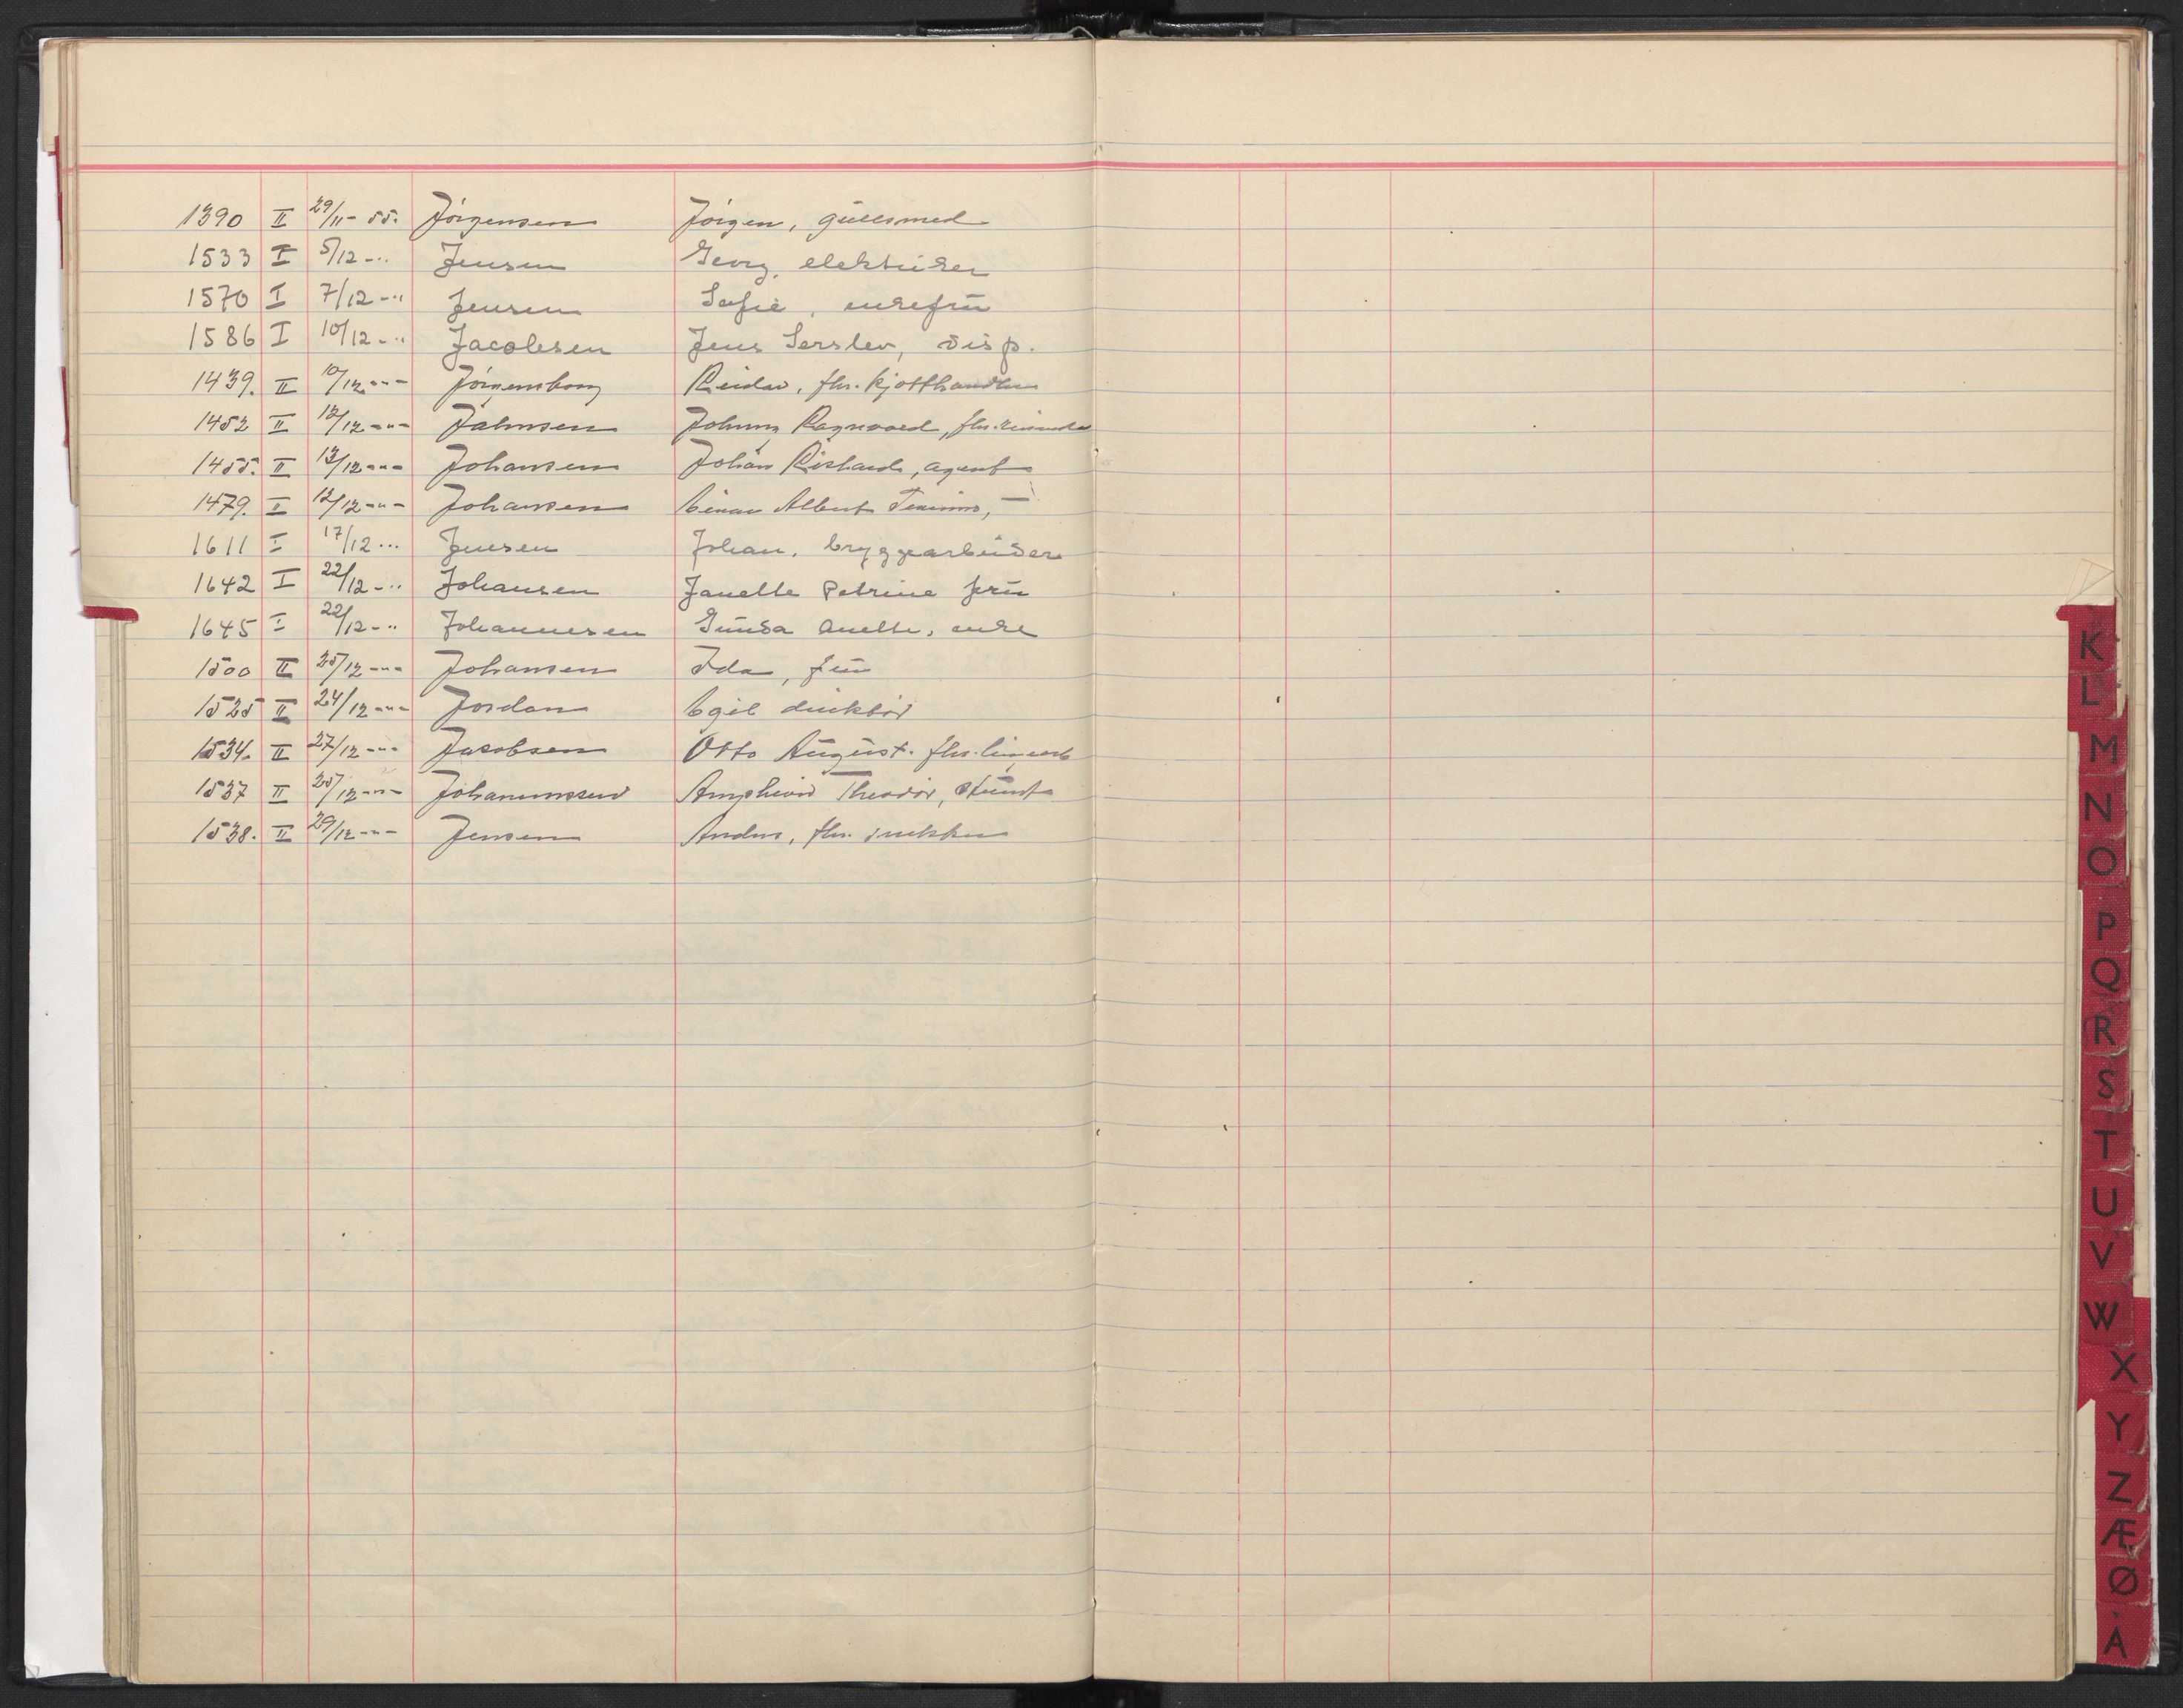 1390 II 29/11-55. Jörgensen Jörgen, gullsmed
1533 I 5/12-" Jensen Georg, elektriker
1570 I 7/12-" Jensen Sofie, enkefru
1586 I 10/12-" Jacobsen Jens Serslev, disp.
1439. II 10/12-"- Jörgensborg Reidar, fhv. kjötthandler
1452 II 12/12-"- Jahnsen Johnny Ragnvard, fhv.
1455. II 13/12-"- Johansen Johan Rishard, agent
1479. II 12/12-"- Johansen Einar Albert —
1611 I 17/12-" Jensen Johan, bryggearbeider
1642 I 22/12-" Johansen Janette Petrine fru
1645 I 22/12-" Johannesen Gunda Anette, enke
1500 II 25/12-"- Johansen Ida, fru
1525 II 24/12-"- Jordan Egil direktör
1534. II 27/12-"- Jacobsen Otto August. fhv.
1537 II 28/12-"- Johannessen Amphion Theodor,
1538. II 29/12-"- Jensen Anders, fhv. snekker
K
L
M
N
O
P
Q
R
S
T
U
V
W
X
Y
Z
Æ
Ø
Å